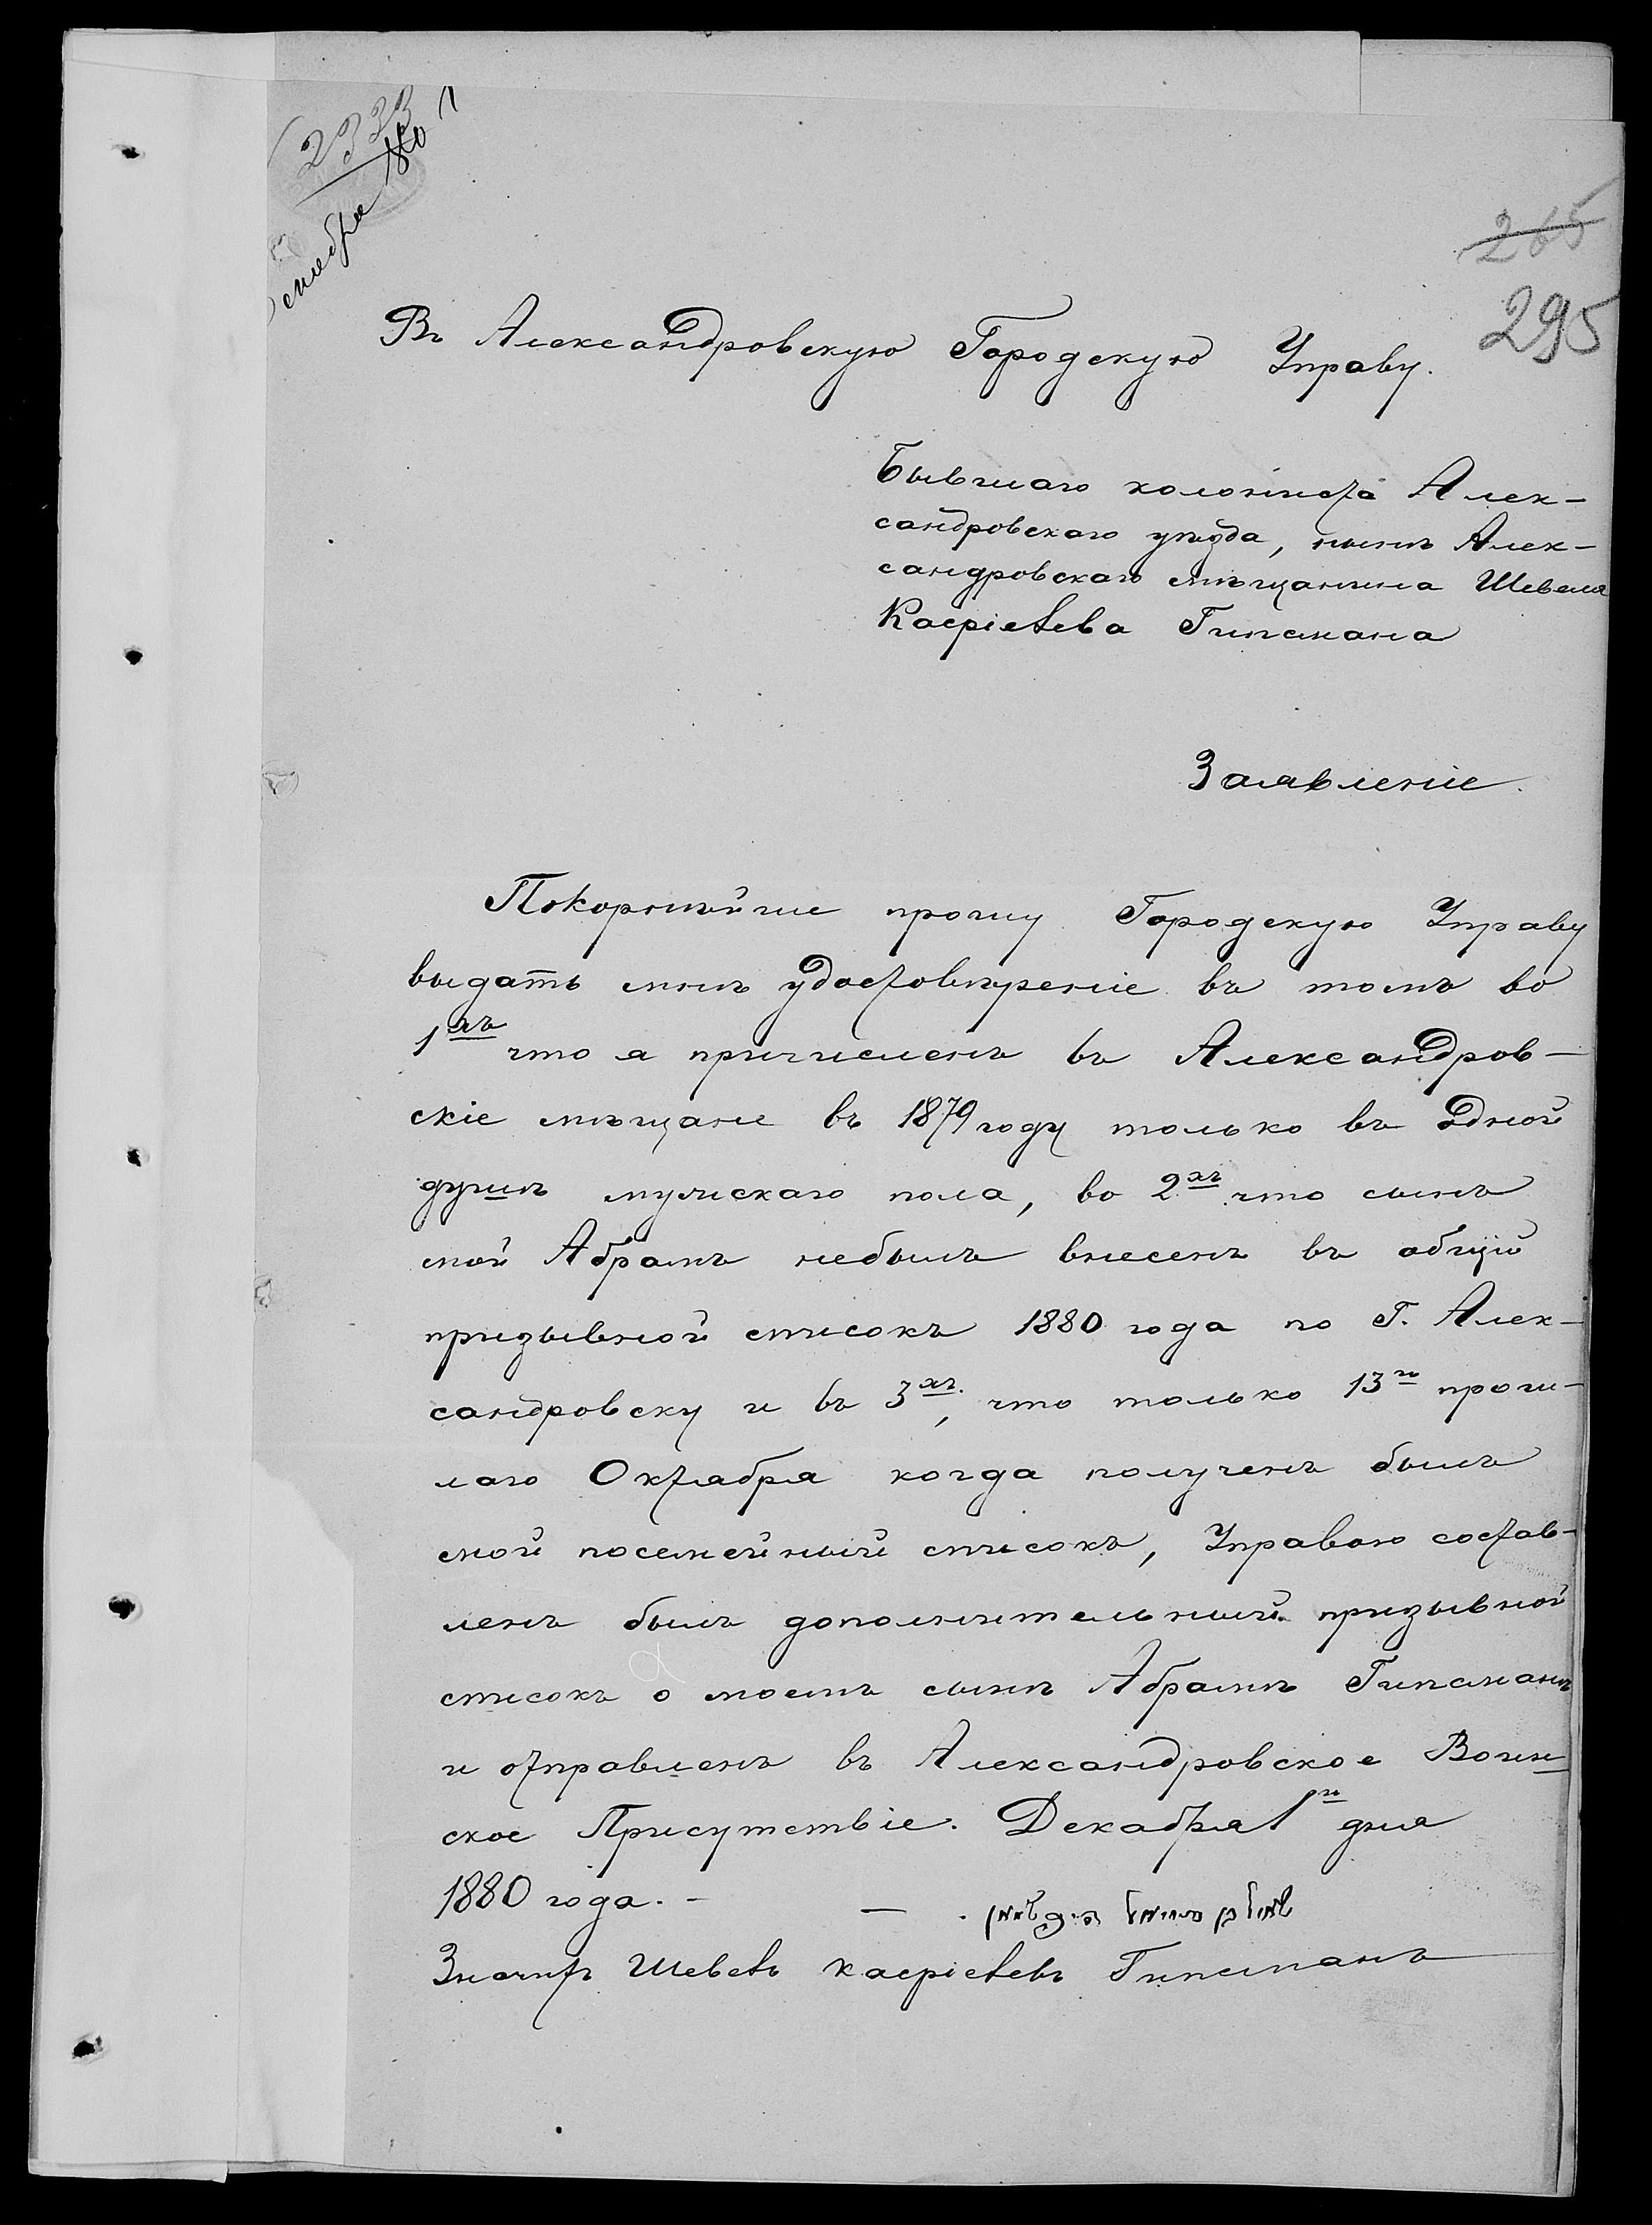 2323
1880
265
295
Въ Александровскую Городскую Управу.
Бывшаго колониста Алек-
сандровскаго уѣзда, нынѣ Алек-
сандровскаго мѣщанина Шевеля
Касріелева Гипсмана
Заявленіе.
Покорнѣйше прошу Городскую Управу
выдать мнѣ удостовѣреніе въ томъ во
1хъ что я причисленъ въ Александров-
скіе мѣщане въ 1879 году только въ одной
душѣ мужскаго пола, во 2хъ что сынъ
мой Абрамъ небылъ внесенъ въ общій
призывной списокъ 1880 года по Г. Алек-
сандровску и въ 3хъ, что только 13го прош-
лаго Октября когда полученъ былъ
мой посемейный списокъ, Управою состав-
ленъ былъ дополнительный призывной
списокъ о моемъ сынѣ Абрамѣ Гипсманѣ
и отправленъ въ Александровское Воин-
ское Присутствіе. Декабря 1го дня
1880 года. -
Значитъ Шевель Касріелевъ Гипсманъ